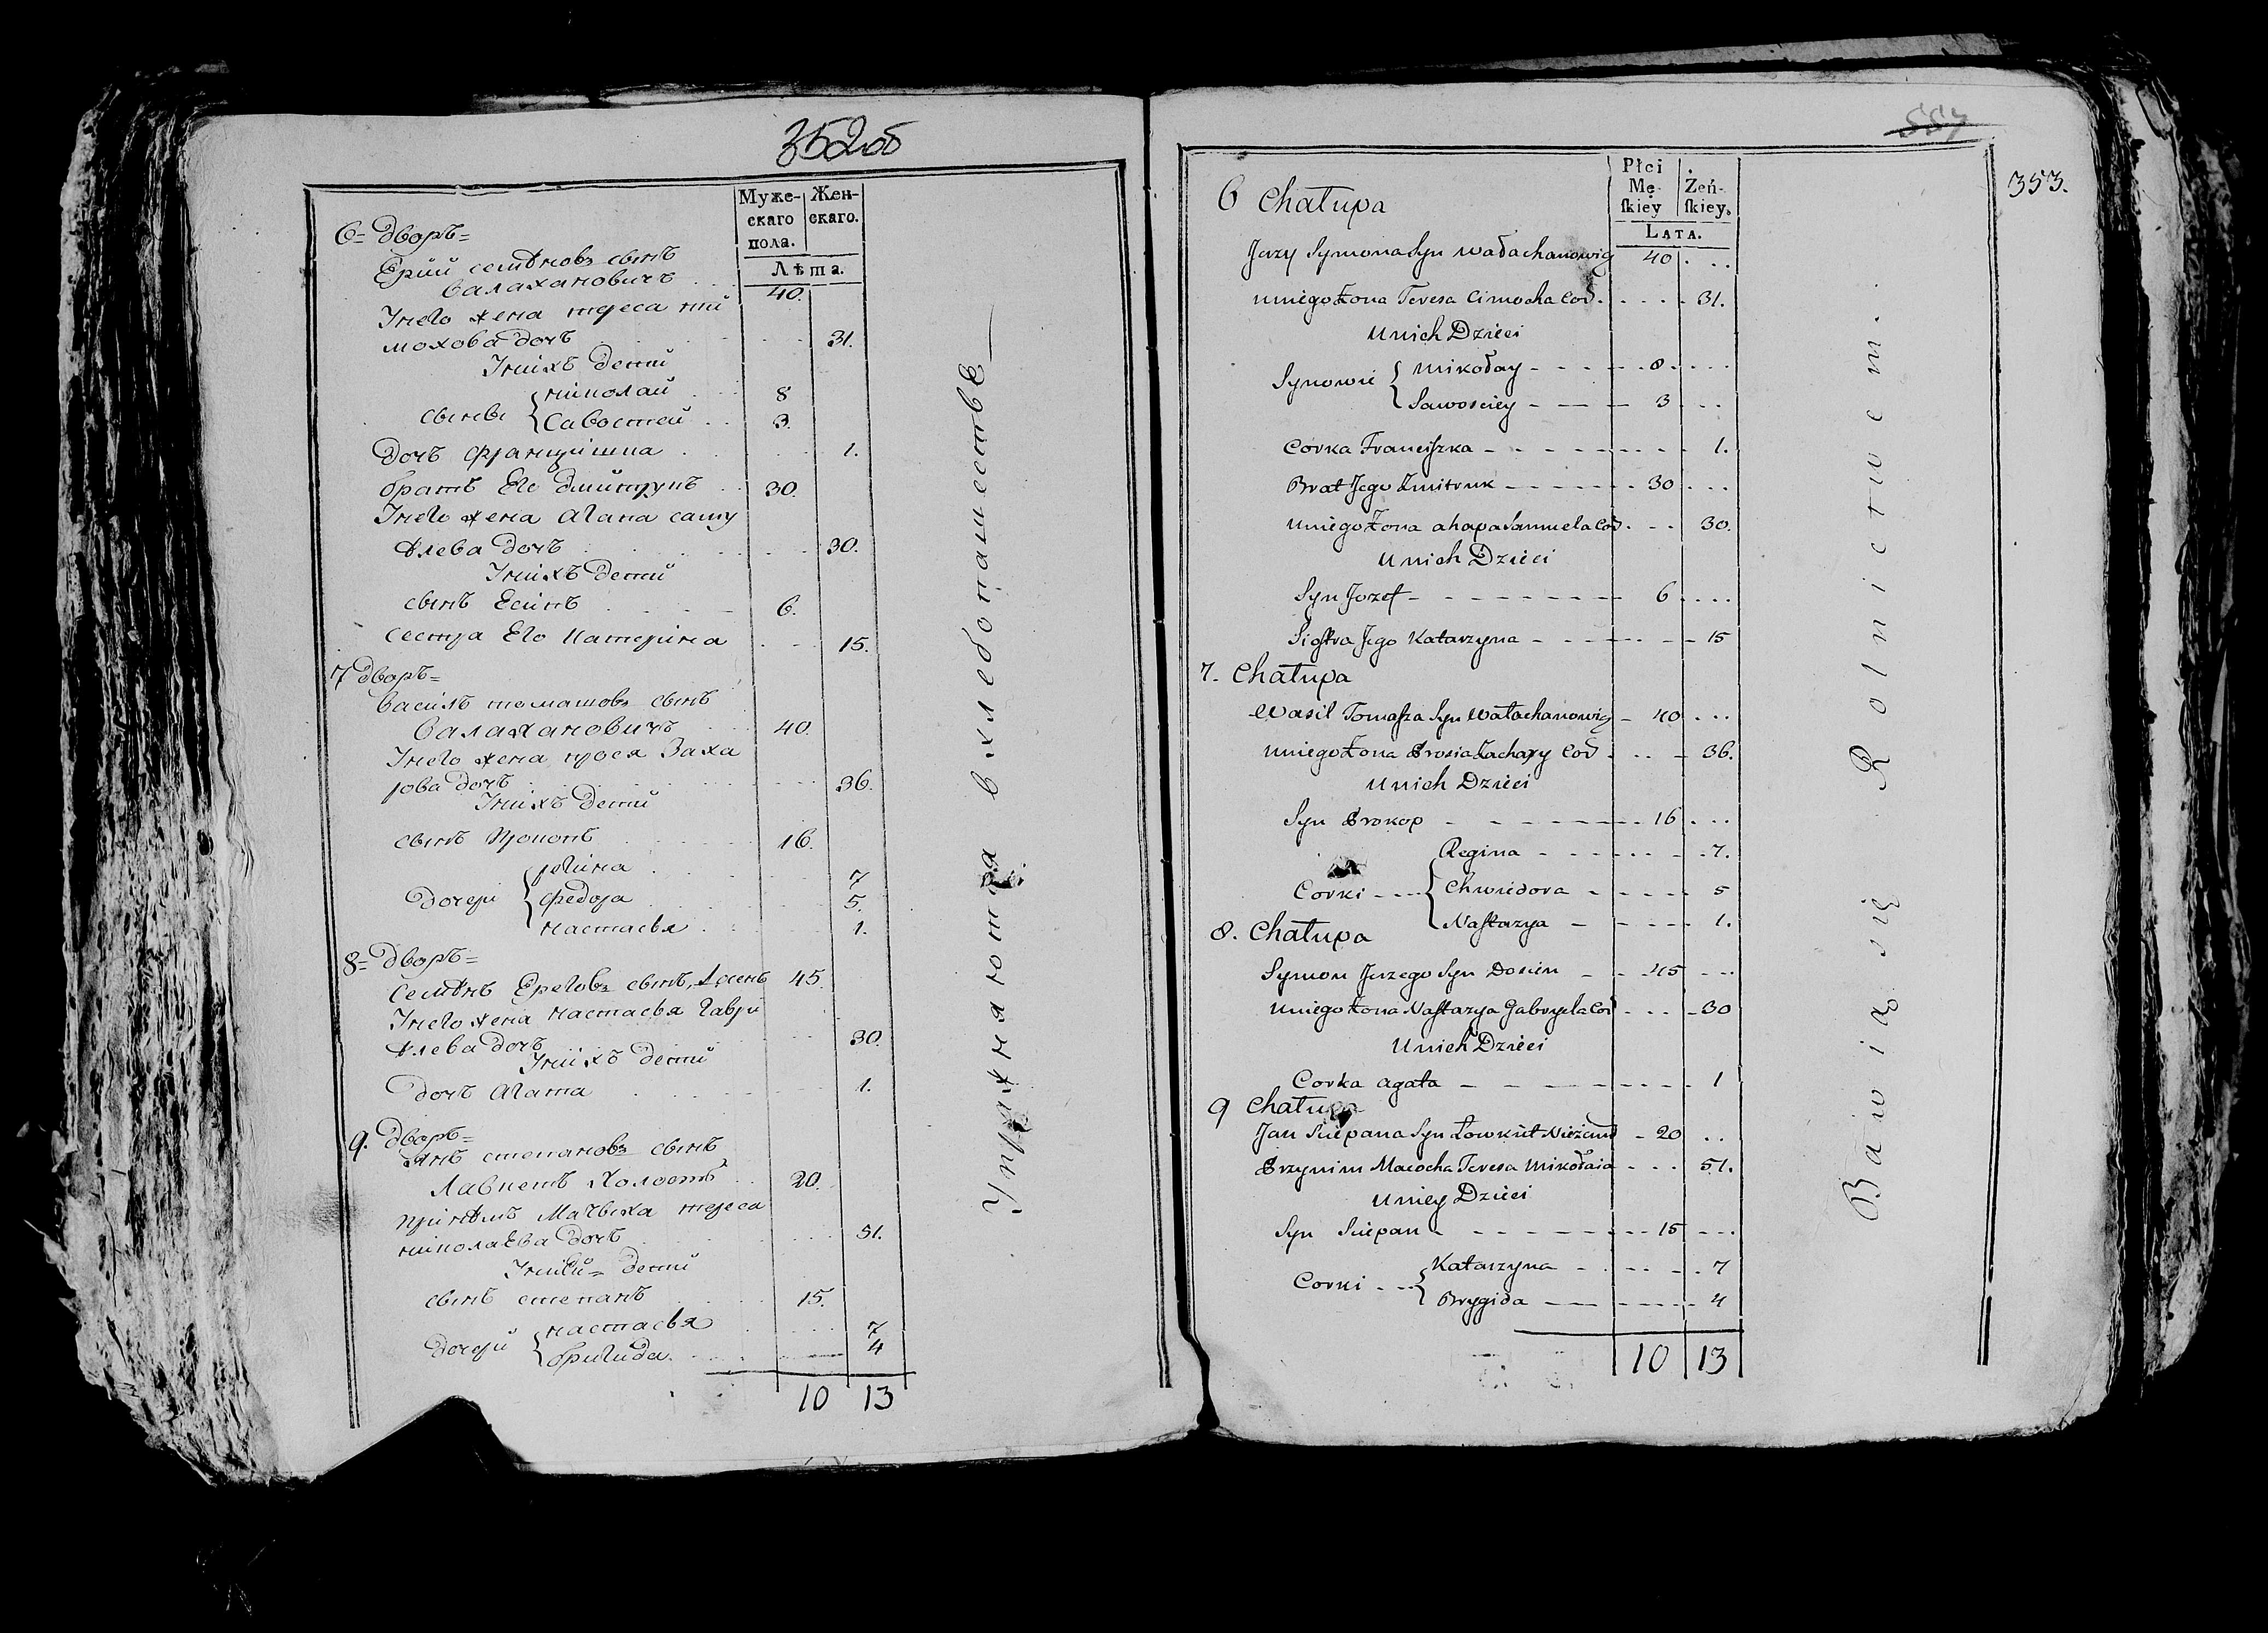 352об
Муже-
скаго
пола.
Жен-
скаго.
Лѣта.
6= Дворъ=
Ерій семѣновъ сынъ
Валахановичъ 40.
Унего жена тереса тим
мохова дочь 31.
Унихъ Детей
сынове { николай 8
Савостей 3.
Дочь Францишка 1.
братъ Его Дмитрукъ 30.
Унего жена Агапа саму
ѣлева дочь 30.
Унихъ Детей
сынъ Есипъ 6.
сестра Его Катерина 15.
7 Дворъ=
Василь томашовъ сынъ
Валахановичъ 40.
Унего жена прося Заха
рова дочь 36.
Унихъ Детей
сынъ Прокопъ 16.
Дочери { регина 7
Федора 5.
настасья 1.
8= Дворъ=
Семѣнъ Ереговъ сынъ 45.
Унего жена настасья Гаври
ѣлева дочь 30.
Унихъ Детей
Дочь Агата 1.
9. Дворъ=
Янъ степановъ сынъ
Лавкетъ Холостъ 20.
Принѣмъ Мачыха тереса
николаева Дочь 51.
Уней= Детей
сынъ степанъ 15.
Дочери { настасья 7
бригида 4
10 13
Упражняются в хлебопашестве
557
353.
Płci
Mę-
skiey
Żeń-
skiey.
LATA.
6 Chałupa
Jerzy Symona Syn Wałachanowicz 40
Uniego Żona Teresa Cimocha Cor 31.
Unich Dzieci
Synowie { Mikołay 8
Sawosciey 3
Corka Franciszka 1.
Brat Jego Zmitruk 30
Uniego Żona ahapa Samuela Cor 30.
Unich Dzieci
Syn Jozef 6
Siostra Jego Katarzyna 15
7. Chałupa
Wasil Tomasza Syn Wałachanowicz 40
Uniego Żona Prosia Zachary Cor 36.
Unich Dzieci
Syn Prokop 16
Corki { Regina 7.
Chwiedora 5
Nastazya 1.
8. Chałupa
Symon Jerzego Syn Dosien 45
Uniego Żona Nastazya Gabryela Cor 30
Unich Dzieci
Corka agata 1
9 Chałupa
Jan Sciepana Syn Łowkiet Nieżenn 20
Przynim Macocha Teresa Mikołaia 51.
Uniey Dzieci
Syn Sciepan 15
Corki { Katarzyna 7
Brygida 4
10 13
Bawią się Rolnictwem.